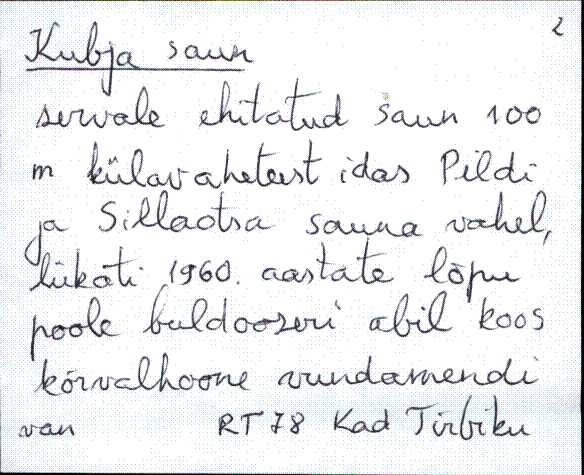 2
Kubja saun
servale ehitatud saun 100
m külavaheteest idas Pildi
ja Sillaotsa sauna vahel,
lükati 1960. aastate lõpu
poole buldooseri abil koos
kõrvalhoone vundamendi
van RT 78 Kad Tirbiku